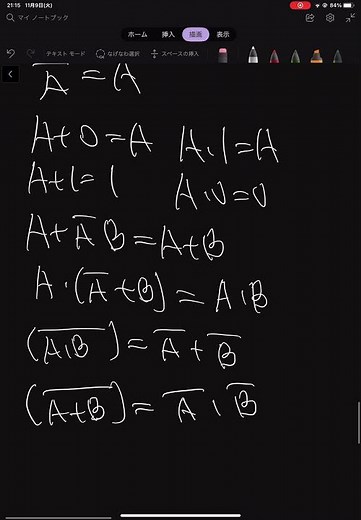 21:15 11月9日(火) 84%
マイ ノートブック
ホーム 挿入 描画 表示
テキスト モード なげなわ選択 スペースの挿入
A̅ = A
A+0=A A·1=A
A+1=1 A·0=0
A+A̅B=A+B
A·(A̅+B)=A·B
(\overline{A·B})=A̅+B̅
(\overline{A+B})=A̅·B̅